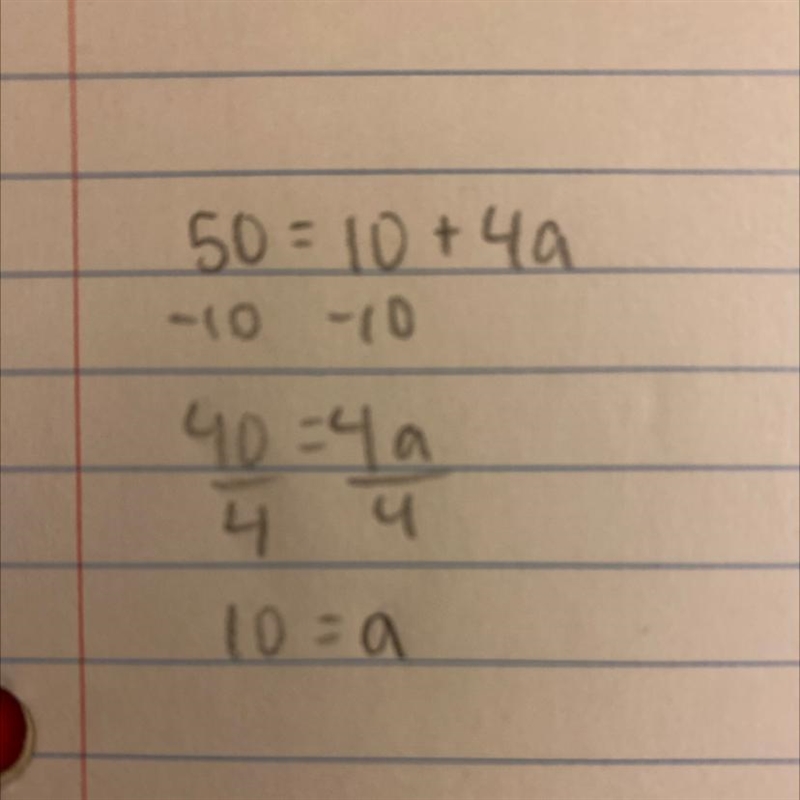 50 = 10 + 4a
-10 -10
40 = 4a
4 4
10 = a